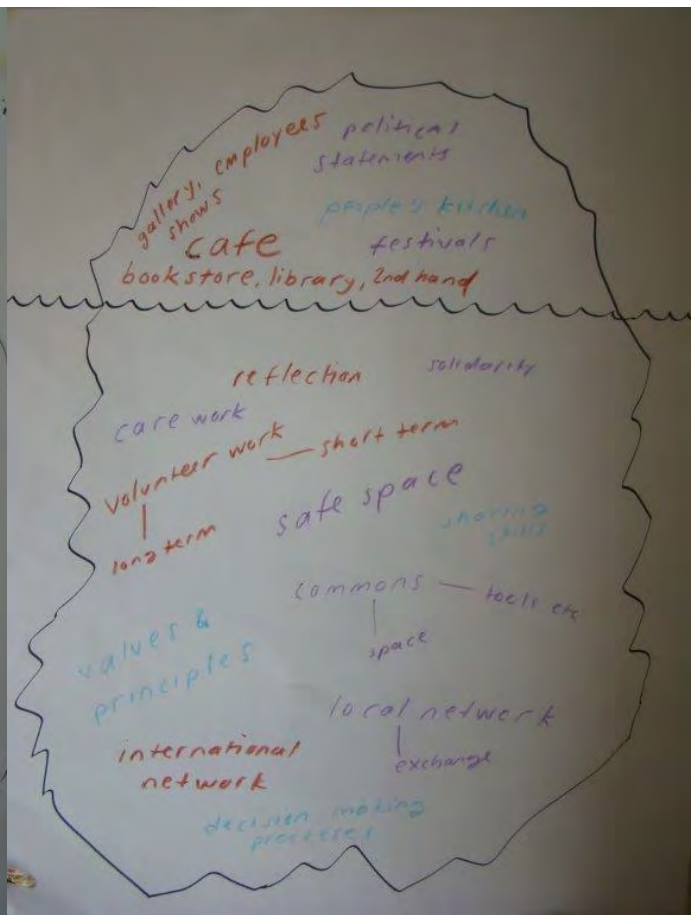 gallery, employees
shows
political
statements
people's kitchen
cafe
festivals
bookstore, library, 2nd hand
reflection
solidarity
care work
volunteer work — short term
long term
safe space
sharing
skills
commons — tools etc
space
values &
principles
local network
exchange
international
network
decision making
processes